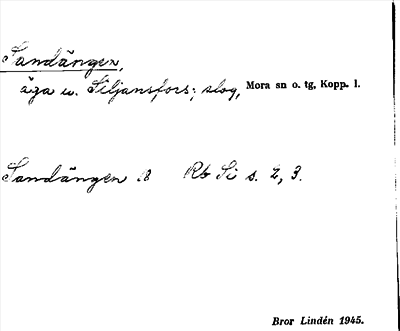 Sandängen,
äga u. Siljansfors; slog, Mora sn o. tg, Kopp. l.
Sandängen B Rb Si s. 2, 3.
Bror Lindén 1945.